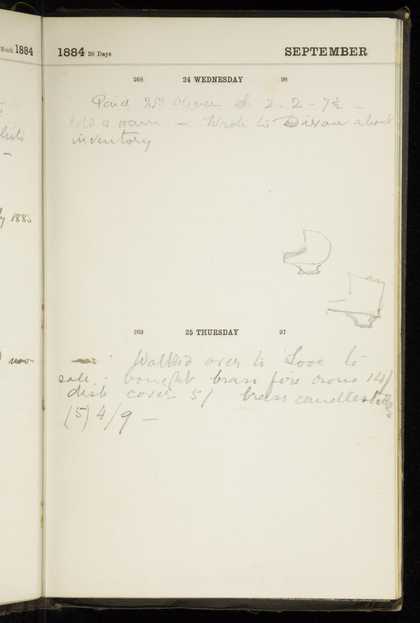 Month 1884
1884 30 Days SEPTEMBER
268 24 WEDNESDAY 98
Paid Wm Oliver £ 2-2-7½ -
- Wrote to Dixon about
inventory
y 1885
269 25 THURSDAY 97
Walked over to Looe to
sale - bought brass fire irons 14/
dish cover 5/ brass candlesticks
(5) 4/9 -